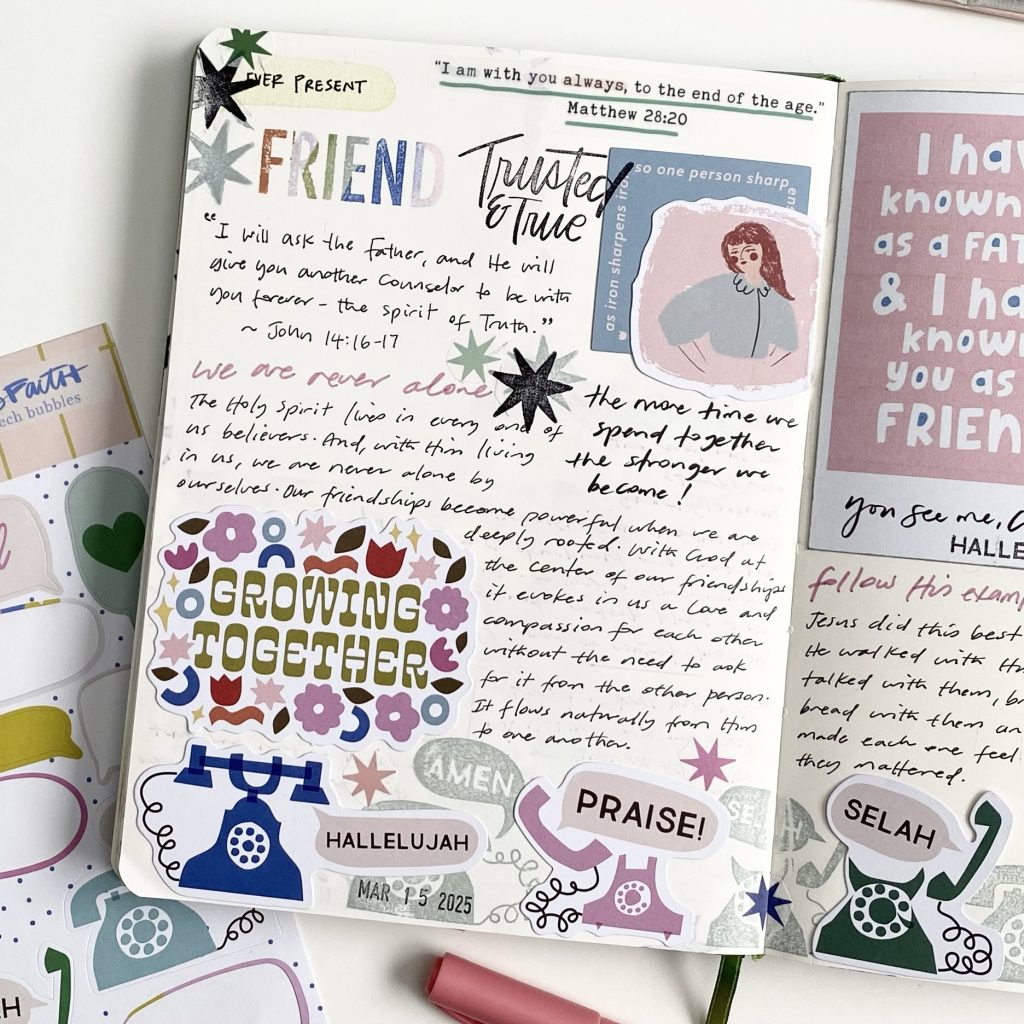 EVER PRESENT
FRIEND
"I am with you always, to the end of the age."
Matthew 28:20
Trusted
& True
as iron sharpens iron
so one person sharpens
"I will ask the Father, and He will
give you another Counselor to be with
you forever - the spirit of Truth."
~ John 14:16-17
We are never alone
The Holy Spirit lives in every one of
us believers. And, with Him living
in us, we are never alone by
ourselves. Our friendships become powerful when we are
deeply rooted. With God at
the center of our friendships
it evokes in us a love and
compassion for each other
without the need to ask
for it from the other person.
It flows naturally from Him
to one another.
the more time we
spend together
the stronger we
become!
GROWING
TOGETHER
HALLELUJAH
AMEN
PRAISE!
MAR 15 2025
I hav
known
as a FAT
& I ha
known
you as
FRIEN
you see me,
HALLE
follow His examp
Jesus did this best
He walked with
talked with them, br
bread with them an
made each one feel
they mattered.
SELAH
FAITH
ech bubbles